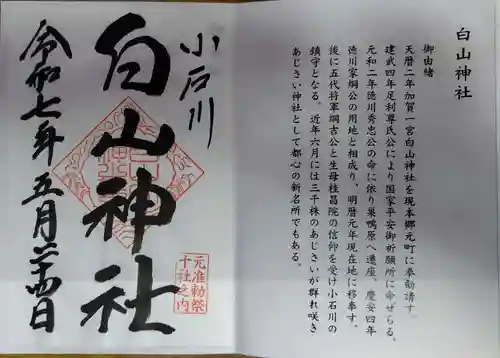 白山神社
御由緒
天暦二年加賀一宮白山神社を現本郷元町に奉勧請す。
建武四年足利尊氏公により国家平安御祈願所に命ぜらる。
元和二年徳川秀忠公の命に依り巣鴨原へ遷座、慶安四年
徳川家綱公の用地と相成り、明暦元年現在地に移奉す。
後に五代将軍綱吉公と生母桂昌院の信仰を受け小石川の
鎮守となる。近年六月には三千株のあじさいが群れ咲き
あじさい神社として都心の新名所でもある。
小石川
元准勅祭
十社之内
白山神社
令和七年五月廿四日